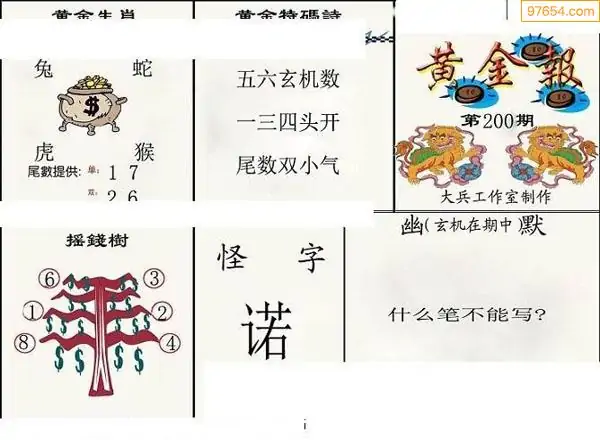 97654.com
黄金生肖
兔 蛇
$
虎 猴
尾數提供: 单: 1 7
双: 2 6
黄金特碼詩
五六玄机数
一三四头开
尾数双小气
黄金報
第200期
大兵工作室制作
摇錢樹
⑥ ③
① ②
⑧ ④
$ $ $ $ $ $ $ $ $ $
怪 字
诺
幽(玄机在期中)默
什么笔不能写?
i